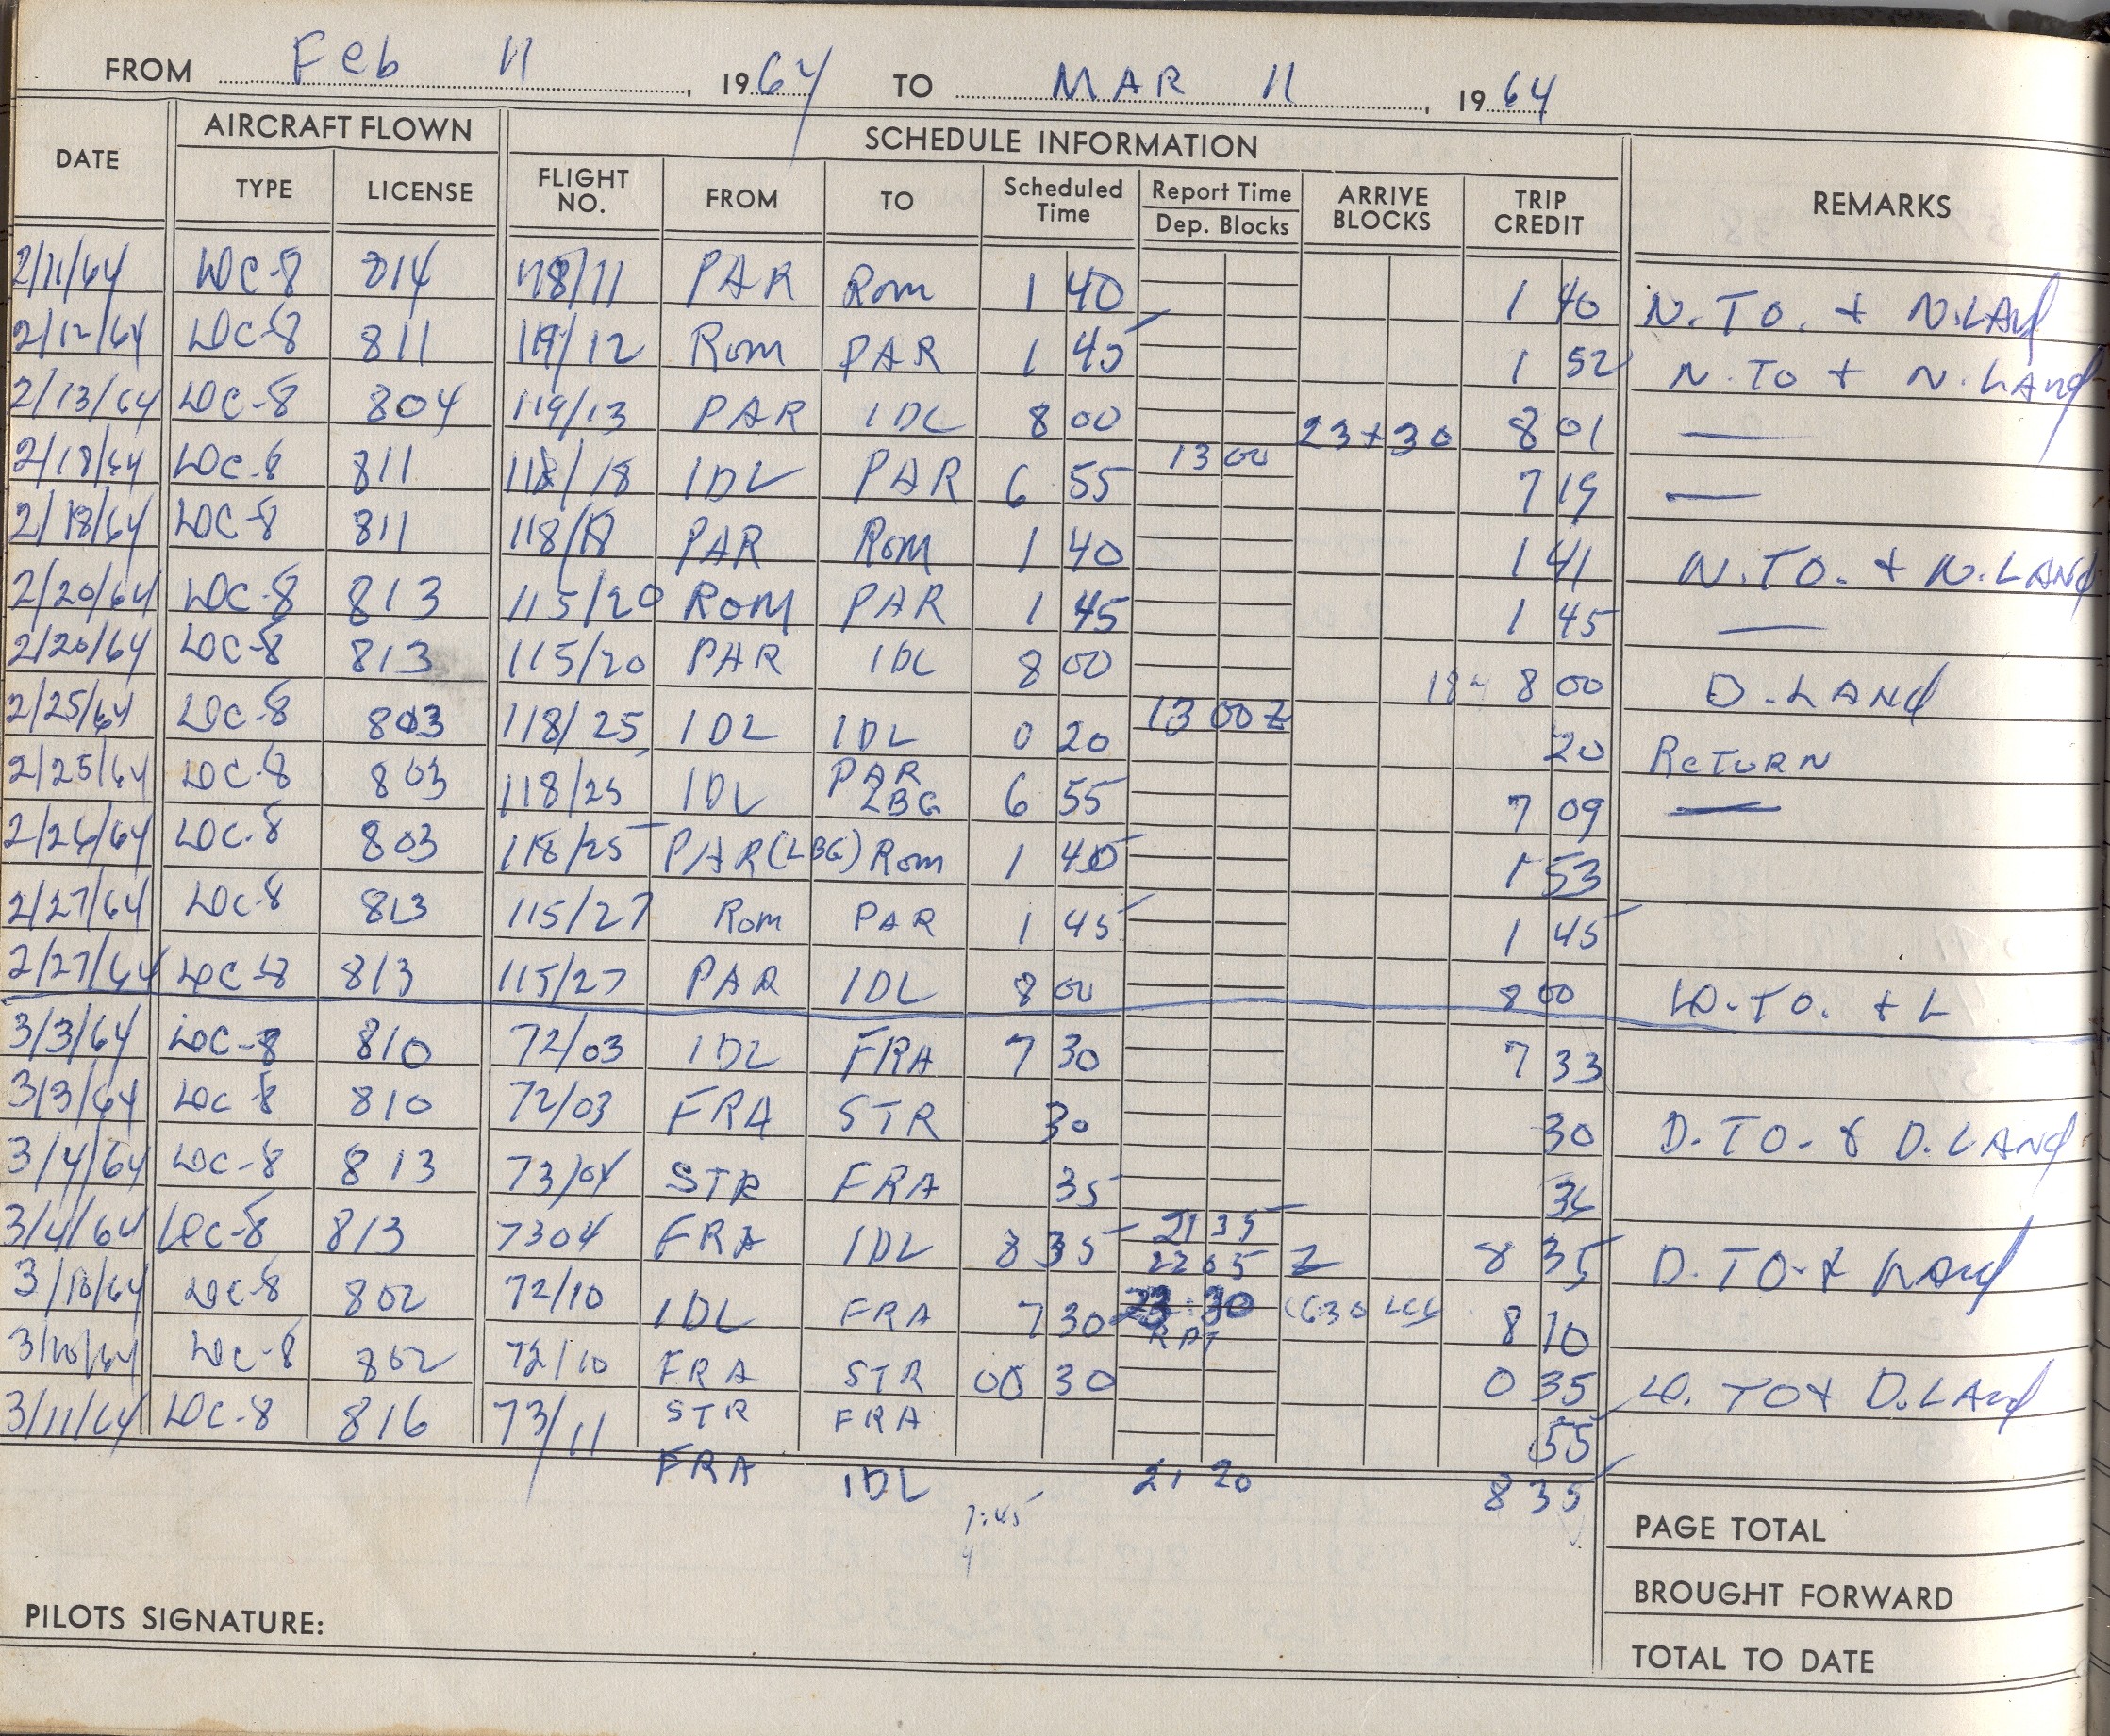 FROM Feb 11, 1964 TO MAR 11, 1964
DATE AIRCRAFT FLOWN SCHEDULE INFORMATION REMARKS
TYPE LICENSE FLIGHT NO. FROM TO Scheduled Time Report Time Dep. Blocks ARRIVE BLOCKS TRIP CREDIT
2/11/64 DC-8 814 118/11 PAR Rom 1 40 1 40 N.TO. + N.LAnd
2/12/64 DC-8 811 119/12 Rom PAR 1 45 1 52 N.TO + N.LAnd
2/13/64 DC-8 804 119/13 PAR IDL 8 00 23+30 8 01 —
2/18/64 DC-8 811 118/18 IDL PAR 6 55 13 00 7 19 —
2/18/64 DC-8 811 118/18 PAR Rom 1 40 1 41 N.TO. + N.LANd
2/20/64 DC-8 813 115/20 ROM PAR 1 45 1 45 —
2/20/64 DC-8 813 115/20 PAR IDL 8 00 8 00 D.LANd
2/25/64 DC-8 803 118/25 IDL IDL 0 20 13 00 Z 20 ReTURN
2/25/64 DC-8 803 118/25 IDL PAR LBG 6 55 7 09 —
2/26/64 DC-8 803 118/25 PAR(LBG) Rom 1 40 1 53
2/27/64 DC-8 813 115/27 Rom PAR 1 45 1 45
2/27/64 DC-8 813 115/27 PAR IDL 8 00 8 00 D.TO. + L
3/3/64 DC-8 810 72/03 IDL FRA 7 30 7 33
3/3/64 DC-8 810 72/03 FRA STR 30 30 D.TO. & D.LANd
3/4/64 DC-8 813 73/04 STR FRA 35 36
3/4/64 DC-8 813 7304 FRA IDL 8 35 21 35 22 05 Z 8 35 D.TO + LANd
3/10/64 DC-8 802 72/10 IDL FRA 7 30 23:30 RPT 8 10
3/10/64 DC-8 802 72/10 FRA STR 00 30 0 35 D. TO + D.LANd
3/11/64 DC-8 816 73/11 STR FRA 55
FRA IDL 21 20 8 35
7:45
PAGE TOTAL
BROUGHT FORWARD
PILOTS SIGNATURE:
TOTAL TO DATE